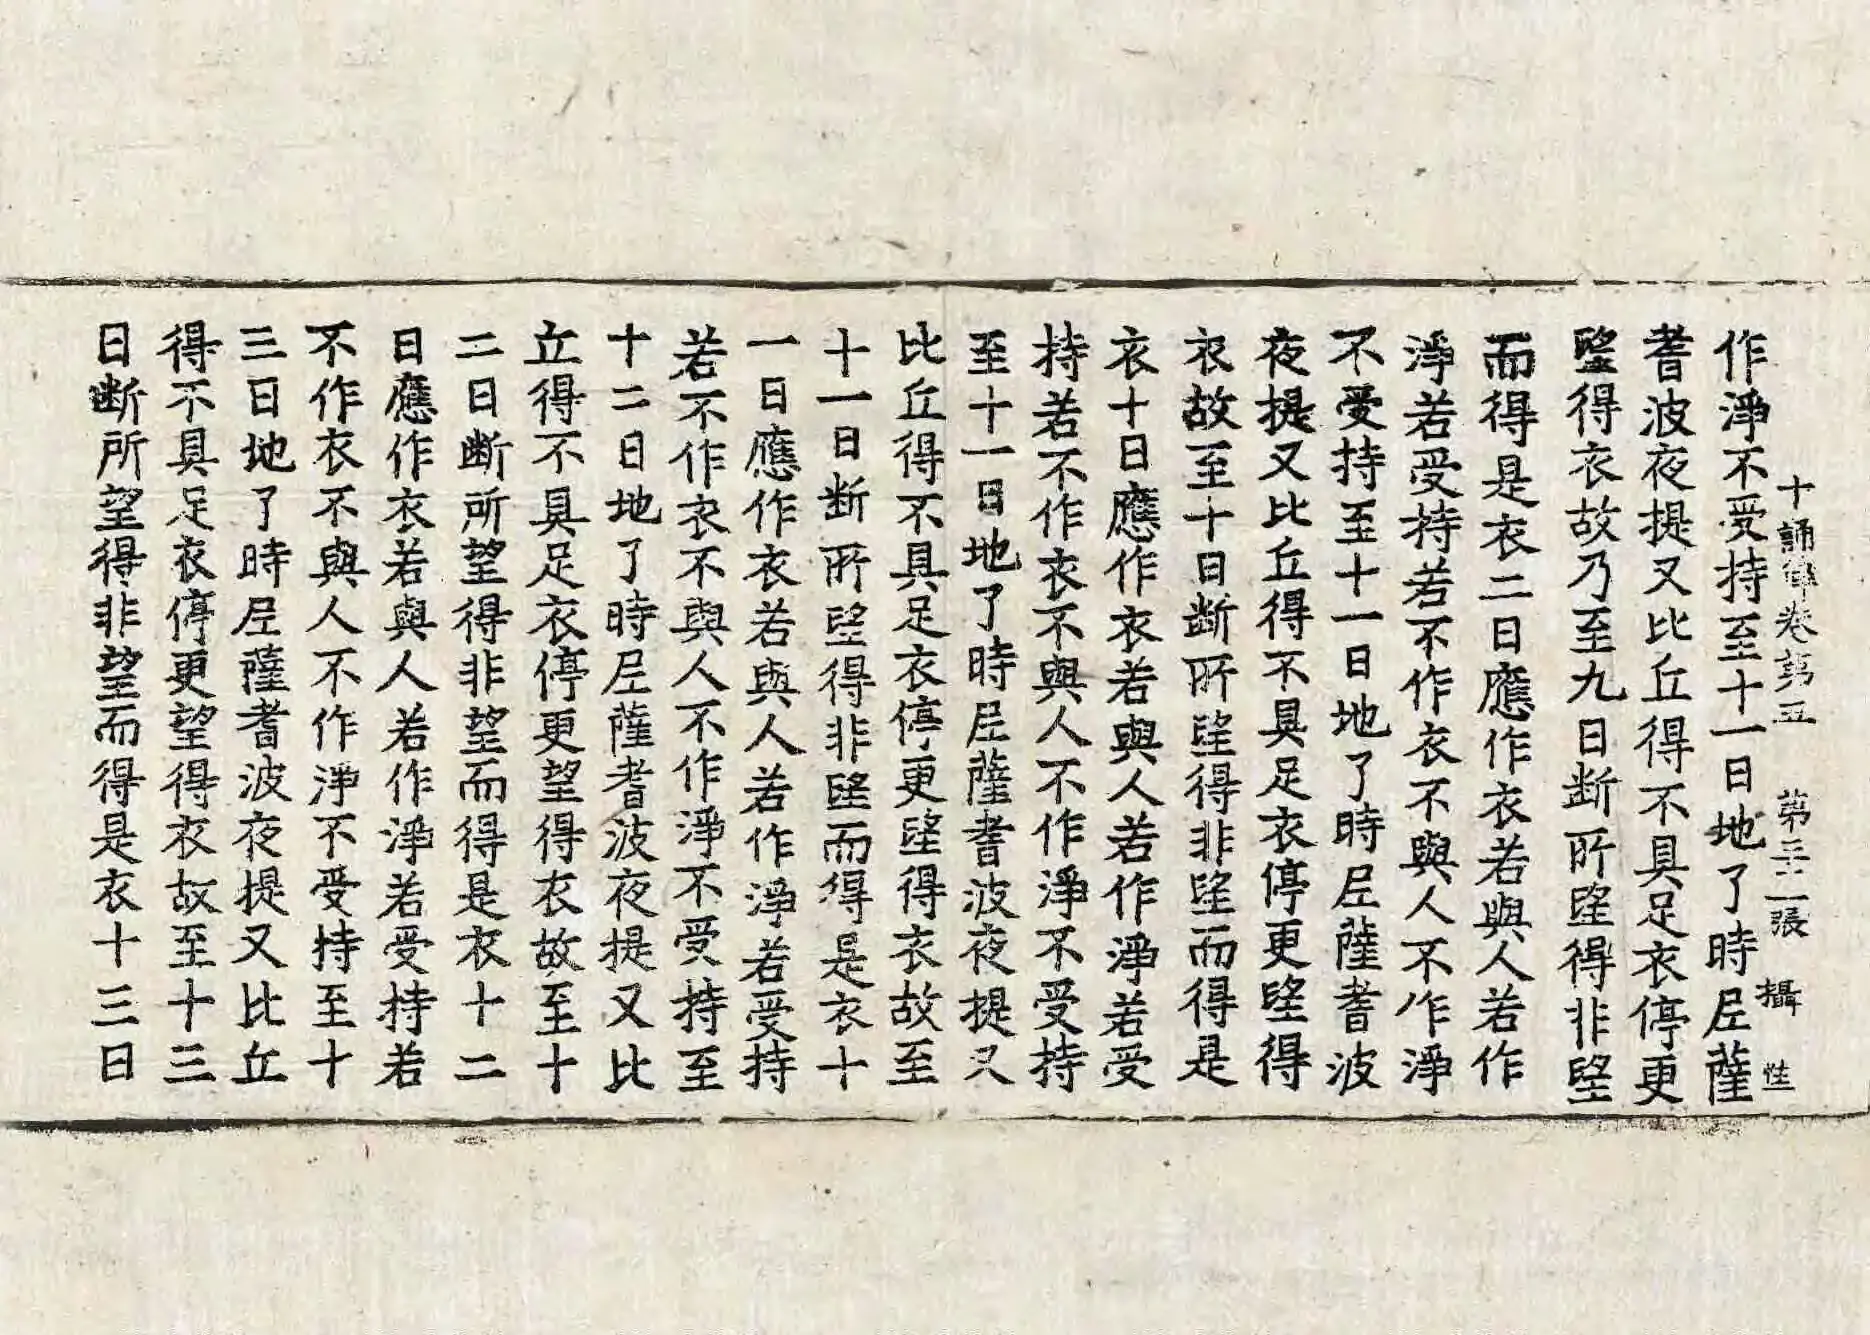 十誦律卷第五 第 張 攝 性
作淨不受持至十一日地了時尼薩
耆波夜提又比丘得不具足衣停更
望得衣故乃至九日断所望得非望
而得是衣二日應作衣若與人若作
淨若受持若不作衣不與人不作淨
不受持至十一日地了時尼薩耆波
夜提又比丘得不具足衣停更望得
衣故至十日断所望得非望而得是
衣十日應作衣若與人若作淨若受
持若不作衣不與人不作淨不受持
至十一日地了時尼薩耆波夜提又
比丘得不具足衣停更望得衣故至
十一日断所望得非望而得是衣十
一日應作衣若與人若作淨若受持
若不作衣不與人不作淨不受持至
十二日地了時尼薩耆波夜提又比
丘得不具足衣停更望得衣故至十
二日断所望得非望而得是衣十二
日應作衣若與人若作淨若受持若
不作衣不與人不作淨不受持至十
三日地了時尼薩耆波夜提又比丘
得不具足衣停更望得衣故至十三
日断所望得非望而得是衣十三日